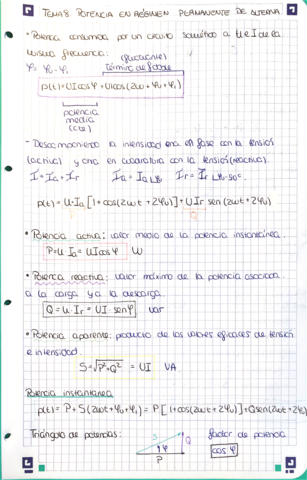 TEMA 8 POTENCIA EN RÉGIMEN PERMANENTE DE ALTERNA
• Potencia consumida por un circuito sometido a U e I de la
misma frecuencia: (fluctuante)
φ = φu - φi término de doble
p(t) = UI cos φ + UI cos (2ωt + φu + φi)
potencia
media
(cte)
- Descomponiendo la intensidad en en fase con la tensión
(activa) y en cuadratura con la tensión (reactiva).
I = Ia + Ir Ia = Ia Lφu Ir = Ir Lφu-90º
p(t) = U·Ia [1 + cos (2ωt + 2φu)] + U Ir sen (2ωt + 2φu)
• Potencia activa: valor medio de la potencia instantánea.
P = U Ia = U I cos φ W
• Potencia reactiva: valor máximo de la potencia asociada
a la carga y a la descarga.
Q = U · Ir = UI sen φ var
• Potencia aparente: producto de los valores eficaces de tensión
e intensidad.
S = √P²+Q² = UI VA
Potencia instantánea
p(t) = P + S (2ωt + φu + φi) = P [1 + cos (2ωt + 2φu)] + Q sen (2ωt + 2φu)
Triángulo de potencias: S Q factor de potencia
φ cos φ
P